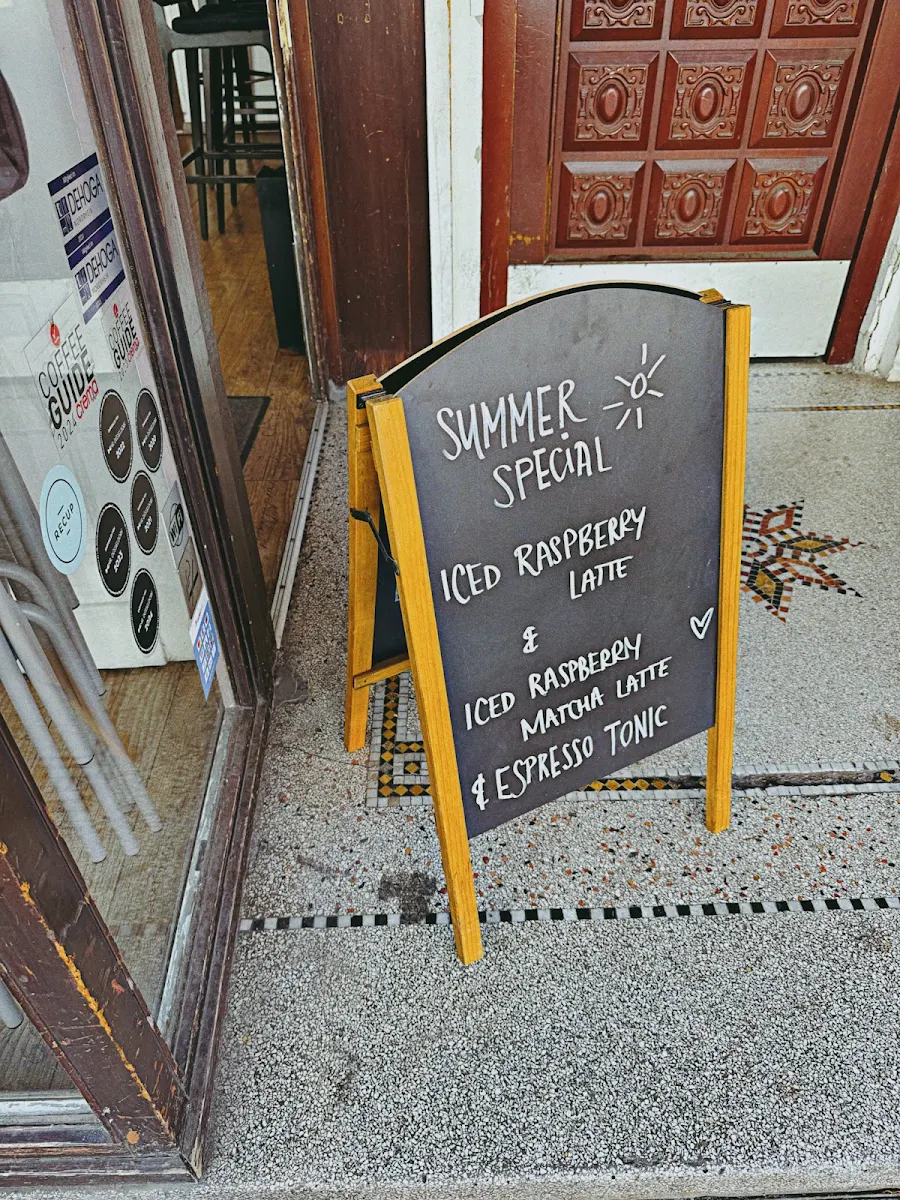 DEHOGA
DEHOGA
COFFEE
GUIDE
2024 crema
COFFEE
GUIDE
crema
2022
2020
RECUP
2023
2021
WiFi
SUMMER
SPECIAL
ICED RASPBERRY
LATTE
&
ICED RASPBERRY
MATCHA LATTE
& ESPRESSO TONIC